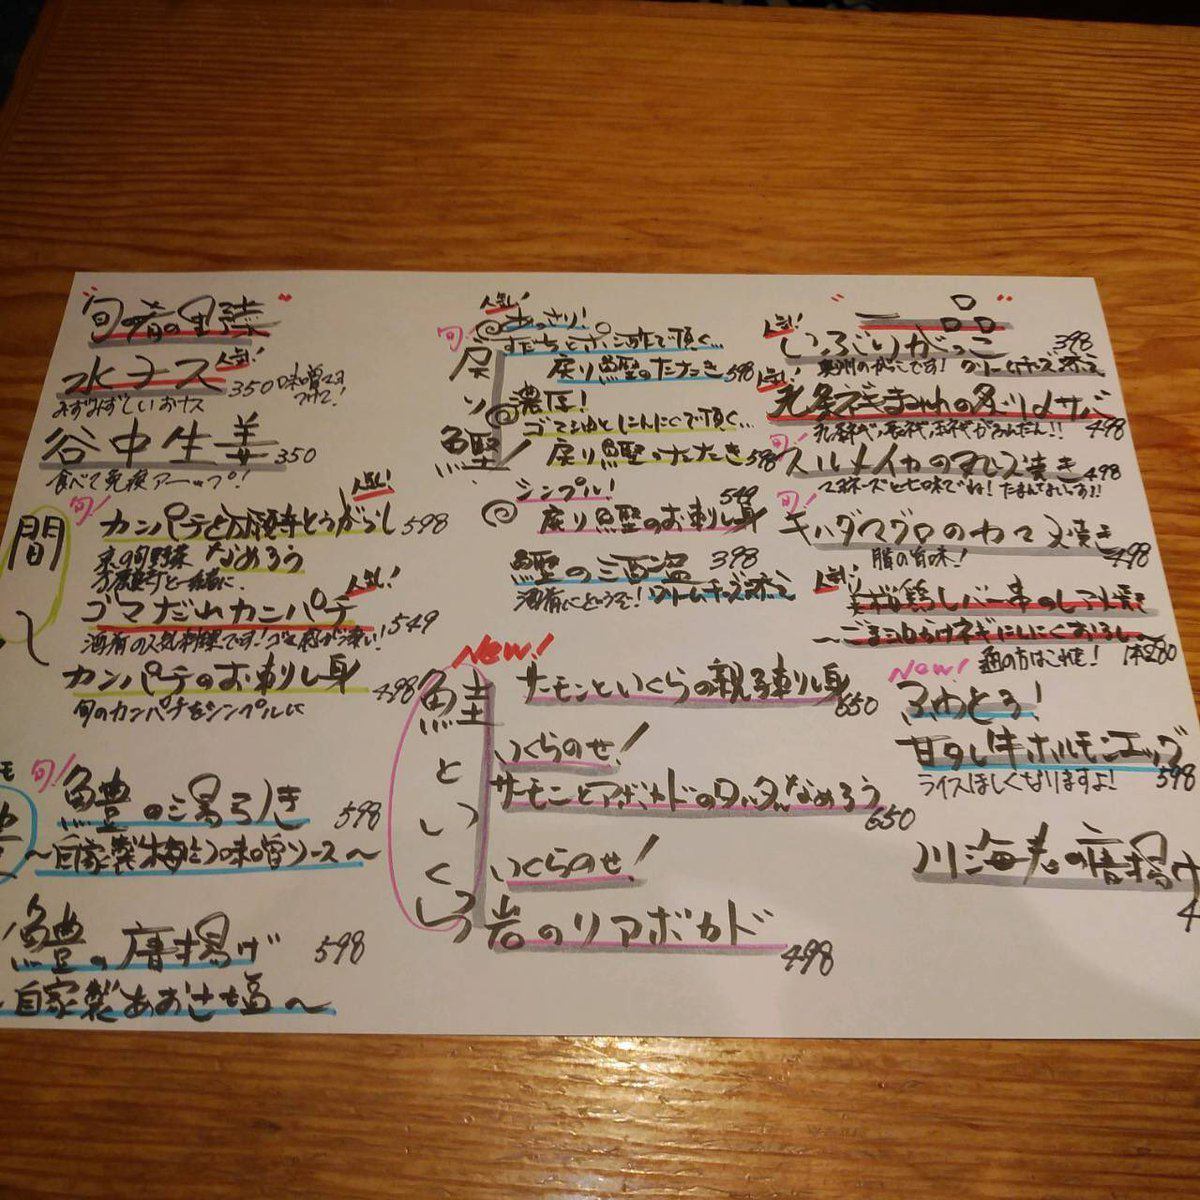 "旬者の野菜"
水ナス 人気! 350 味噌マヨつけて!
みずみずしいおナス
谷中生姜 350
食べて免疫アーップ!
旬! 人気!
間
カンパチと万願寺とうがらし 598
なめろう
京の旬野菜
万願寺と一緒に
人気!
ゴマだれカンパチ 549
酒肴の人気料理です!ゴマ感が凄い!
カンパチのお刺し身 498
旬のカンパチをシンプルに
旬!
鱧の湯引き 598
~自家製梅にんにく味噌ソース~
鱧の唐揚げ 598
自家製あおさ塩~
旬!
戻り鰹!
人気!
あっさり!
すだちとポン酢で頂く…
戻り鰹のたたき 598
濃厚!
ゴマ油とにんにくで頂く…
戻り鰹のたたき 598
シンプル! 549
戻り鰹のお刺し身
鰹の三酒盗 398
酒肴にどうぞ!クリームチーズ添え
New!
鮭といくら
サーモンといくらの親子刺し身 650
いくらのせ!
サーモンとアボカドのタルタルなめろう 650
いくらのせ!
岩のりアボカド 498
"一品"
人気!
いぶりがっこ 398
クリームチーズ添え
人気!
九条ネギまみれの炙り〆サバ 498
旬!
スルメイカの丸ごと焼き 498
マヨネーズと七味でね!たまんないっす!!
旬!
キハダマグロのカマ焼き 498
脂の旨味!
人気!
美桜鶏レバー串のレア焼き
~ごま油かけネギにんにくおろし~
通の方はこれを! 1本280
New!
ふわとろ!
甘辛し牛ホルモンエッグ 598
ライスほしくなりますよ!
川海老の唐揚げ
4